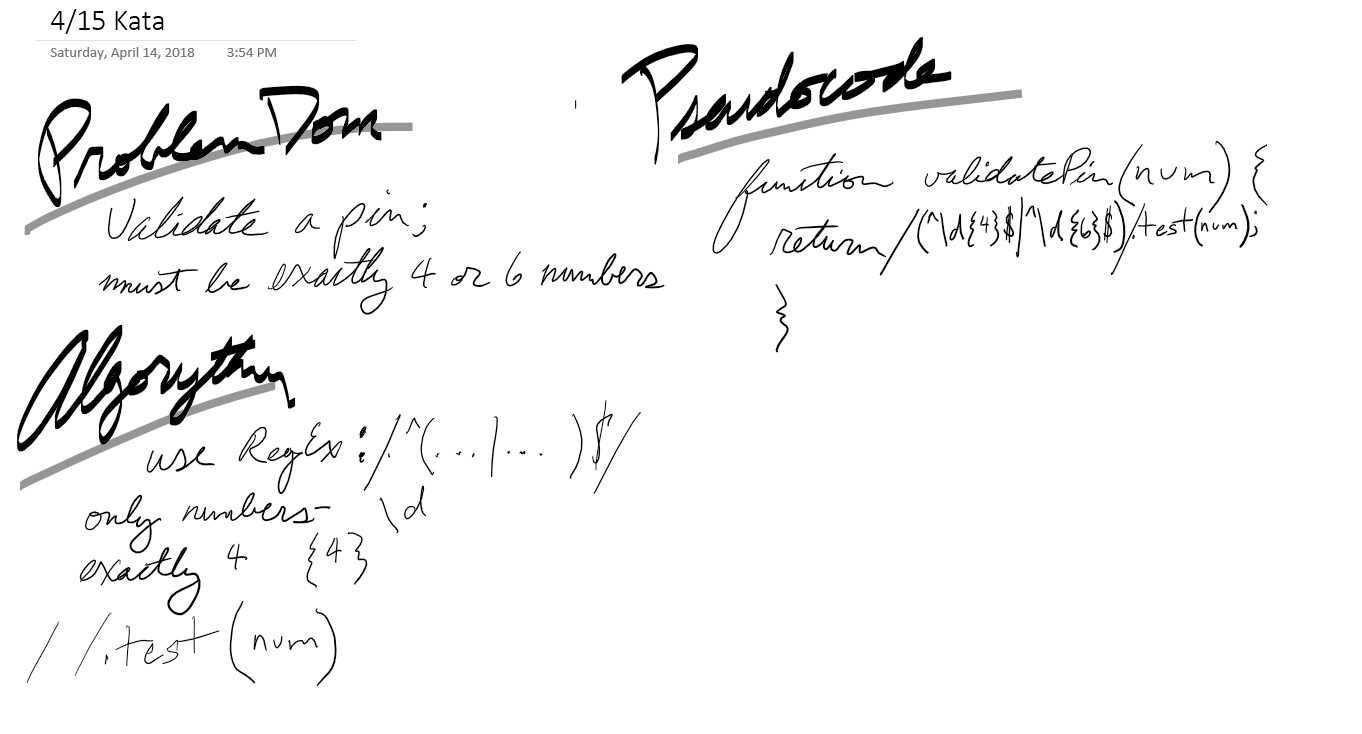 4/15 Kata
Saturday, April 14, 2018 3:54 PM
Problem Dom
Validate a pin;
must be exactly 4 or 6 numbers
Algorythm
use RegEx: /^(...|...)$/
only numbers- \d
exactly 4 {4}
/ /.test(num)
Pseudocode
function validatePin(num) {
return /(^\d{4}$|^\d{6}$)/.test(num);
}